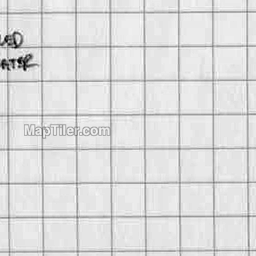 LED
ATER
MapTiler.com